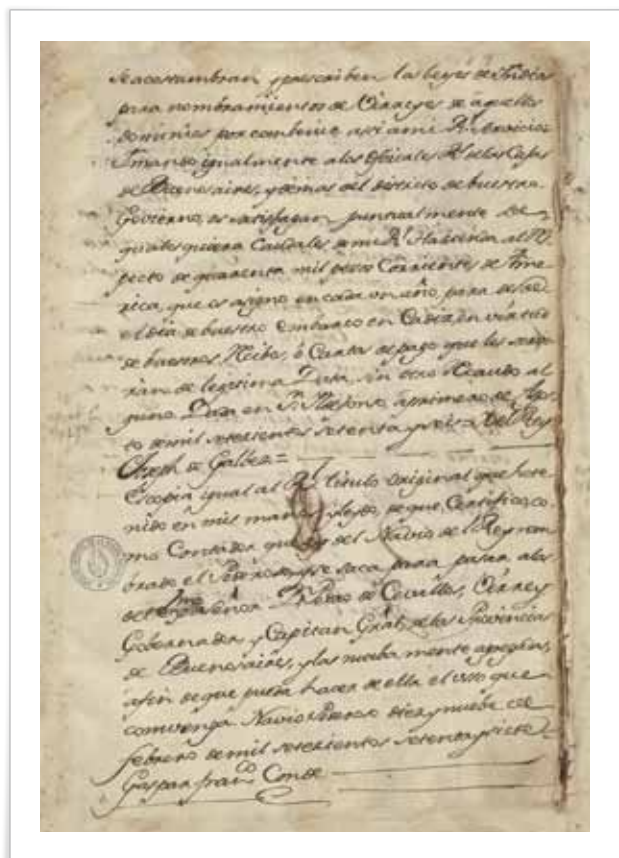 se acostumbran y prescriben las leyes de Indias
para nombramientos de Virreyes de aquellos
dominios por combenir assi a mi Rl. servicio:
Y mando igualmente a los Oficiales Rs. de las Cajas
de Buenos aires, y demas del distrito de buestra
Govierno, os satisfagan puntualmente de
quales quiera Caudales de mi Rl. Hacienda al Res
pecto de quarenta mil pesos Corrientes de Ame
rica, que os asigno en cada un año, para desde
el dia de buestro embarco en Cadiz, en virtud
de buestros Recibos, ó Cartas de pago que les servi
rán de legitima Data, sin otro Recaudo al
guno. Dada en Sn. Ildefonso, a primero de Agos
to de mil setecientos setenta y seis = Yo el Rey =
Joseph de Galbez =
Es copia igual al Rl. titulo original que he te
nido en mis manos, de que Certifico, co
mo Contador que soy del Navio del Rey nom
brado el Poderoso, y se saca para pasar a los
del Exmo. Señor Dn. Pedro de Cevallos, Virrey
Gobernador, y Capitan Gral. de las Provincias
de Buenos aires, y las nueba mente agregadas,
afin de que pueda hacer de ella el uso que
comvenga. Navio Poderoso diez y nuebe de
febrero de mil setecientos setenta y siete =
Gaspar franco. Conde